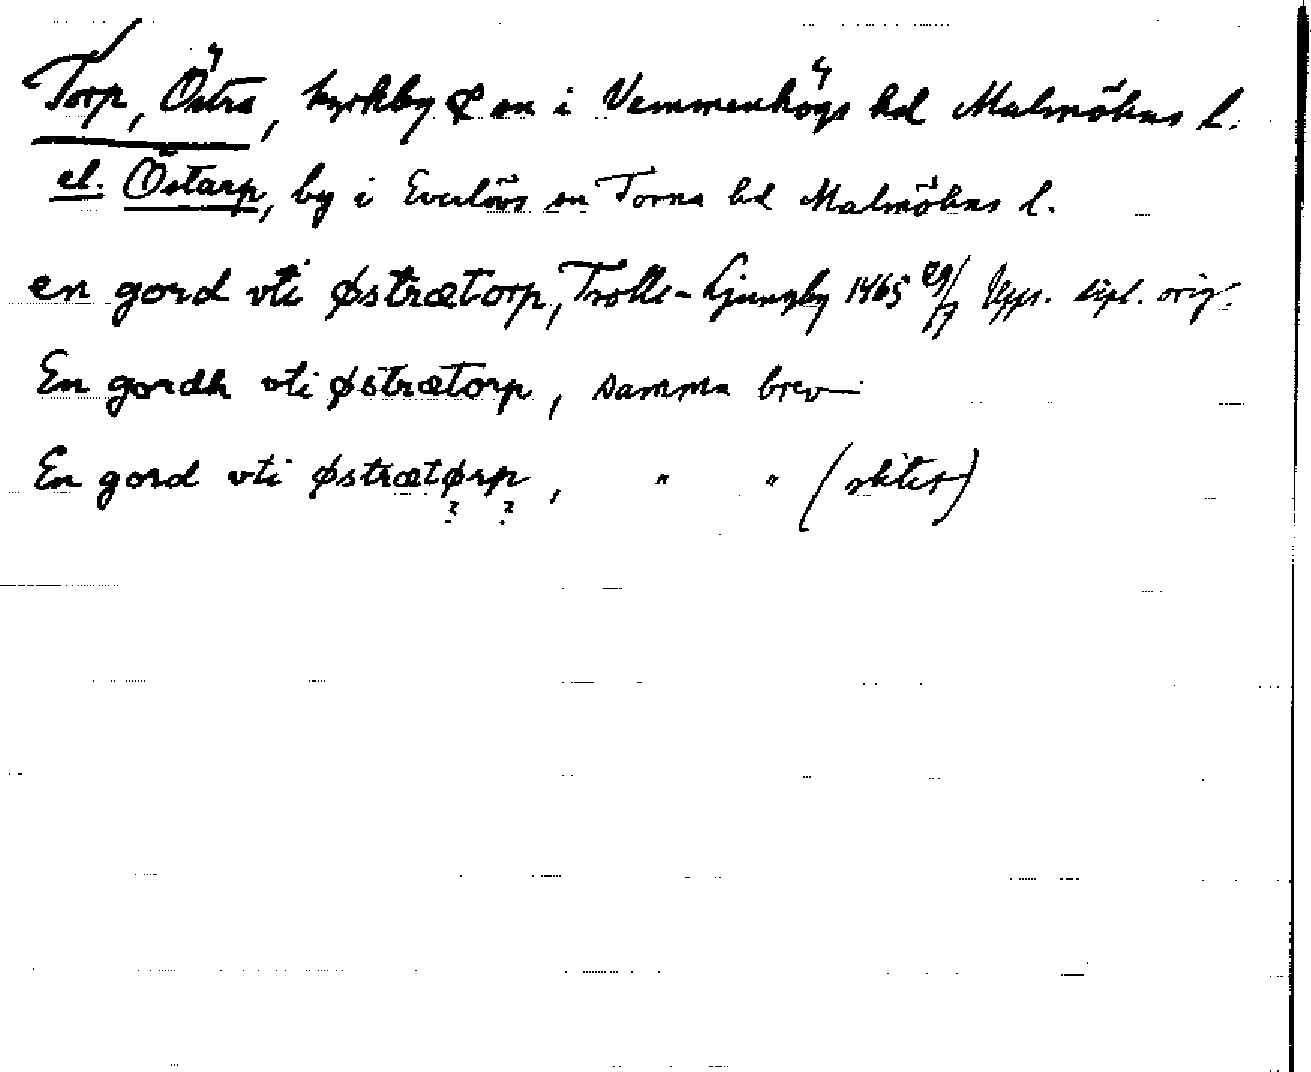 Torp, Östra, kyrkby & sn i Vemmenhögs hd Malmöhus l.
el. Östarp, by i Everlövs sn Torna hd Malmöhus l.
en gord vti østrætorp, Trolle-Ljungby 1465 29/7 Upps. dipl. orig.
En gordh vti østrætorp, samma brev
En gord vti østrætørp, " " (skiter)
? ?